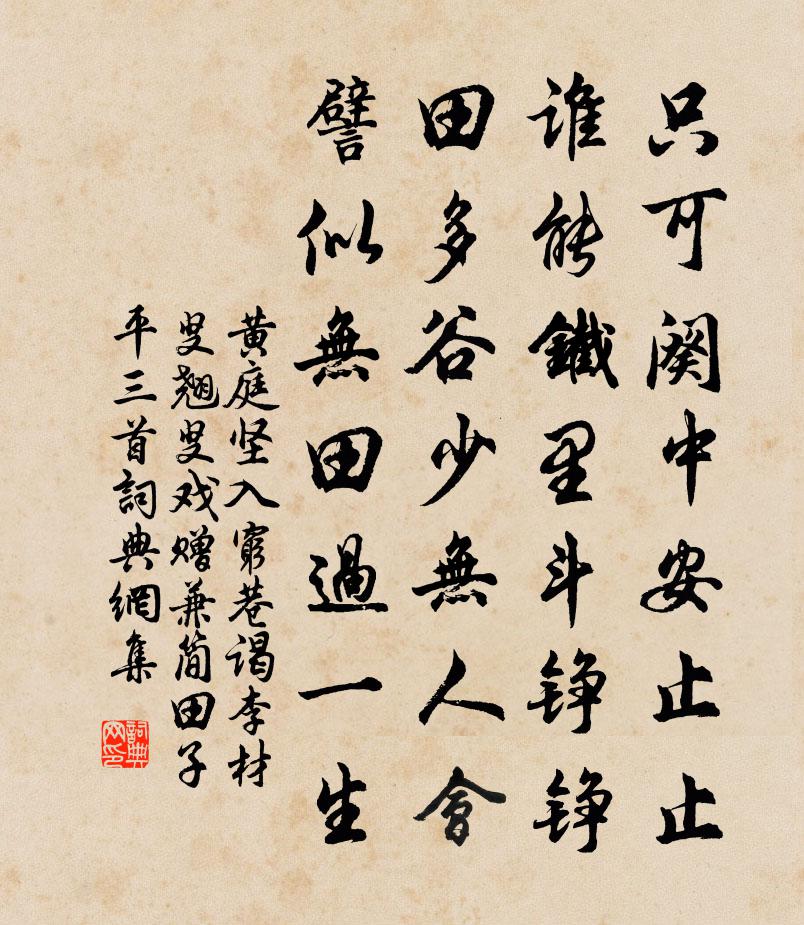 只可阕中安止止
谁能鐵里斗錚錚
田多谷少無人會
譬似無田過一生
黄庭坚入窮巷谒李材
叟翘叟戏赠兼简田子
平三首詞典網集
詞典网印